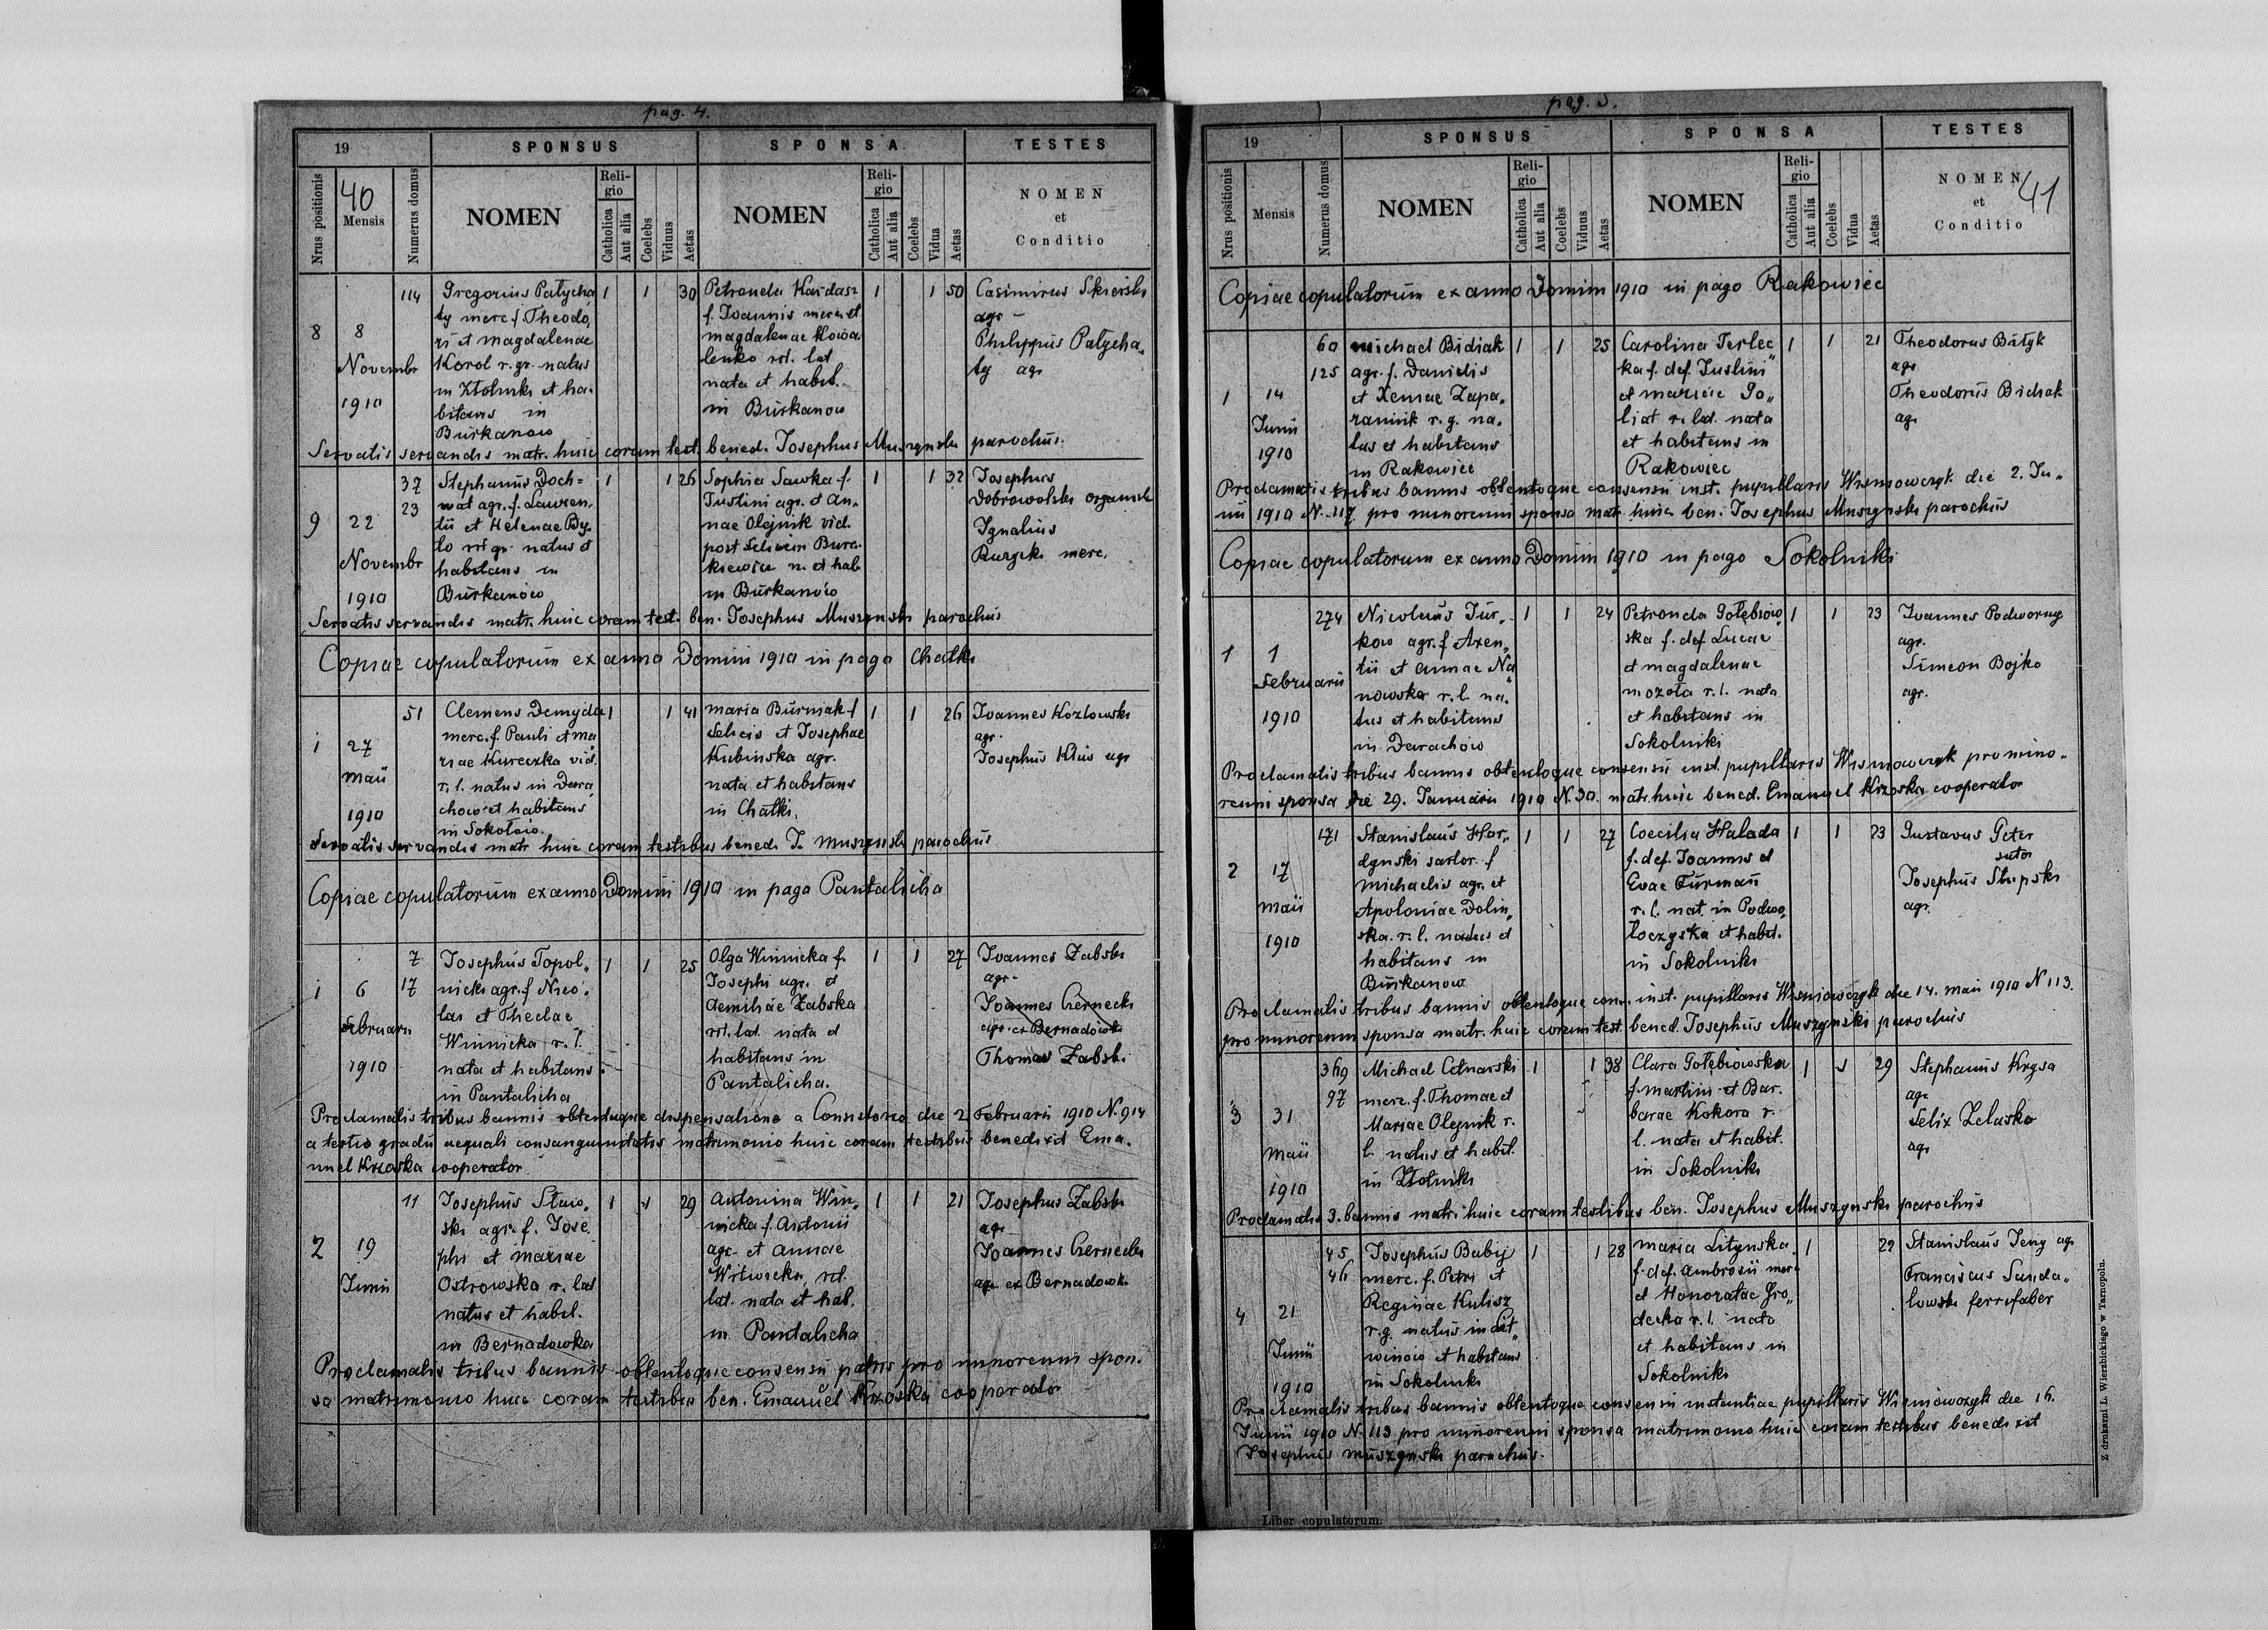 pag. 4.
19 SPONSUS SPONSA TESTES
Nrus positionis
40
Mensis
Numerus domus
NOMEN
Religio
Catholica
Aut alia
Coelebs
Viduus
Aetas
NOMEN
Religio
Catholica
Aut alia
Coelebs
Vidua
Aetas
NOMEN
et
Conditio
8
8
Novembr
1910
114
Gregorius Patycha
ty merc. f. Theodo,
ri et Magdalenae
Korol r. gr. natus
in Złotniki et ha-
bitans in
Burkanow
1 1 30
Petronela Kardasz
f. Joannis merc et
Magdalenae Kowa
lenko rit. lat
nata et habit.
in Burkanow
1 1 50
Casimirus Skierski
agr -
Philippus Patycha,
ty agr
Servatis servandis matr. huic coram test. bened. Josephus Muszynski parochus.
9
22
Novembr
1910
37
23
Stephanus Doch=
wat agr. f. Lauren,
tii et Helenae By,
lo rit gr. natus et
habitans in
Burkanów
1 1 26
Sophia Sawka f.
Justini agr. et An,
nae Olejnik vid.
post Felicem Bure-
kiewicz n. et hab
in Burkanów
1 1 32
Josephus
Dobrowolski organista
Ignatius
Ruzycki merc.
Servatis servandis matr. huic coram test. ben. Josephus Muszynski parochus
Copiae copulatorum ex anno Domini 1910 in pago Chatki
1
27
Maii
1910
51
Clemens Demyda
merc. f. Pauli et Ma
riae Kureczka vid.
r. l. natus in Dara
chow et habitans
in Sokołow.
1 1 41
Maria Burniak f
Felicis et Josephae
Kubinska agr.
nata et habitans
in Chatki.
1 1 26
Joannes Kozlowski
agr.
Josephus Klus agr
Servatis servandis matr huic coram testibus bened. J. Muszynski parochus
Copiae copulatorum ex anno Domini 1910 in pago Pantalicha
1
6
Februarii
1910
7
17
Josephus Topol,,
nicki agr. f Nico,
lai et Theclae
Winnicka r. l.
nata et habitans
in Pantalicha
1 1 25
Olga Winnicka f.
Josephi agr. et
Aemiliae Zabska
rit. lat. nata et
habitans in
Pantalicha.
1 1 27
Joannes Zabski
agr.
Joannes Czernecki
agr. ex Bernadówka
Thomas Zabski.
Proclamatis tribus bannis obtentaque dispensatione a Consistorio die 2 Februarii 1910 N. 914
a tertio gradu aequali consanguinitatis matrimonio huic coram testibus benedixit Ema.
nuel Krzoska cooperator
2
19
Junii
11
Josephus Staw,
ski agr. f. Jose
phi et Mariae
Ostrowska r. lat
natus et habit.
in Bernadowka
1 1 29
Antonina Win,
nicka f. Antonii
agr. et Annae
Witwicka, rit.
lat. nata et hab.
in Pantalicha
1 1 21
Josephus Zabski
agr
Joannes Czernecki
agr ex Bernadowk.
Proclamatis tribus bannis obtentoque consensu patris pro minorenni spon.
sa matrimonio huic coram testibus ben. Emanuel Krzoska cooperator
pag. 5.
19 SPONSUS SPONSA TESTES
Nrus positionis
Mensis
Numerus domus
NOMEN
Religio
Catholica
Aut alia
Coelebs
Viduus
Aetas
NOMEN
Religio
Catholica
Aut alia
Coelebs
Vidua
Aetas
NOMEN
et
Conditio
41
Copiae copulatorum ex anno Domini 1910 in pago Rakowiec
1
14
Junii
1910
60
125
Michael Bidiak
agr. f. Danielis
et Xeniae Zapa,
raniuk r. g. na,
tus et habitans
in Rakowiec
1 1 25
Carolina Terlec
ka f. def. Justini
et Mariae Go,,
liat r. lat. nata
et habitans in
Rakowiec
1 1 21
Theodorus Biłyk
agr
Theodorus Bidiak
ag.
Proclamatis tribus bannis obtentoque consensu inst. pupillaris Wisniowczyk die 2. Ju,,
nii 1910 N. 117 pro minorenni sponsa matr. huic ben. Josephus Muszynski parochus
Copiae copulatorum ex anno Domini 1910 in pago Sokolniki
1
1
Februarii
1910
274
Nicolaus Jur,
kow agr. f Axen,
tii et Annae Na
nowska r. l. na,
tus et habitans
in Darachow
1 1 24
Petronela Gołębiow,
ska f. def. Lucae
et Magdalenae
Mozoła r. l. nata
et habitans in
Sokolniki
1 1 23
Joannes Podworny
agr.
Simeon Bojko
agr.
Proclamatis tribus bannis obtentoque consensu inst. pupillaris Wisniowczyk pro mino.
renni sponsa die 29. Januarii 1910 N. 30. matr. huic bened. Emanuel Krzoska cooperator
2
17
Maii
1910
171
Stanislaus Hor,
dynski sartor. f
Michaelis agr. et
Apoloniae Dolin,
ska. r. l. natus et
habitans in
Burkanow
1 1 27
Coecilia Halada
f. def. Joannis et
Evae Furman
r. l. nat. in Podwo,
łoczyska et habit.
in Sokolniki
1 1 23
Gustavus Peter
sutor
Josephus Slupski
agr.
Proclamatis tribus bannis obtentoque cons. inst. pupillaris Wisniowczyk die 14. Maii 1910 N 113.
pro minorenni sponsa matr. huic coram test. bened. Josephus Muszynski parochus
3
31
Maii
1910
369
97
Michael Cetnarski
merc. f. Thomae et
Mariae Olejnik r.
l. natus et habit.
in Złotniki
1 1 38
Clara Gołębiowska
f. Martini et Bar.
barae Kokora r.
l. nata et habit.
in Sokolniki
1 1 29
Stephanus Krysa
agr
Felix Zelasko
agr
Proclamatis 3. bannis matri. huic coram testibus ben. Josephus Muszynski parochus
4
21
Junii
1910
45
46
Josephus Babij
merc. f. Petri et
Reginae Kulisz
r. g. natus in Lit,,
winow et habitans
in Sokolniki
1 1 28
Maria Litynska
f. def. Ambrosii merc
et Honoratae Gro,,
decka r. l. nata
et habitans in
Sokolniki
1 22
Stanislaus Jeny agr
Franciscus Sunda,,
lowski ferrifaber
Proclamatis tribus bannis obtentoque consensu instantiae pupillaris Wisniowczyk die 16.
Junii 1910 N. 113 pro minorenni sponsa matrimonio huic coram testibus benedixit
Josephus Muszynski parochus.
Liber copulatorum.
Z drukarni L. Wierzbickiego w Tarnopolu.